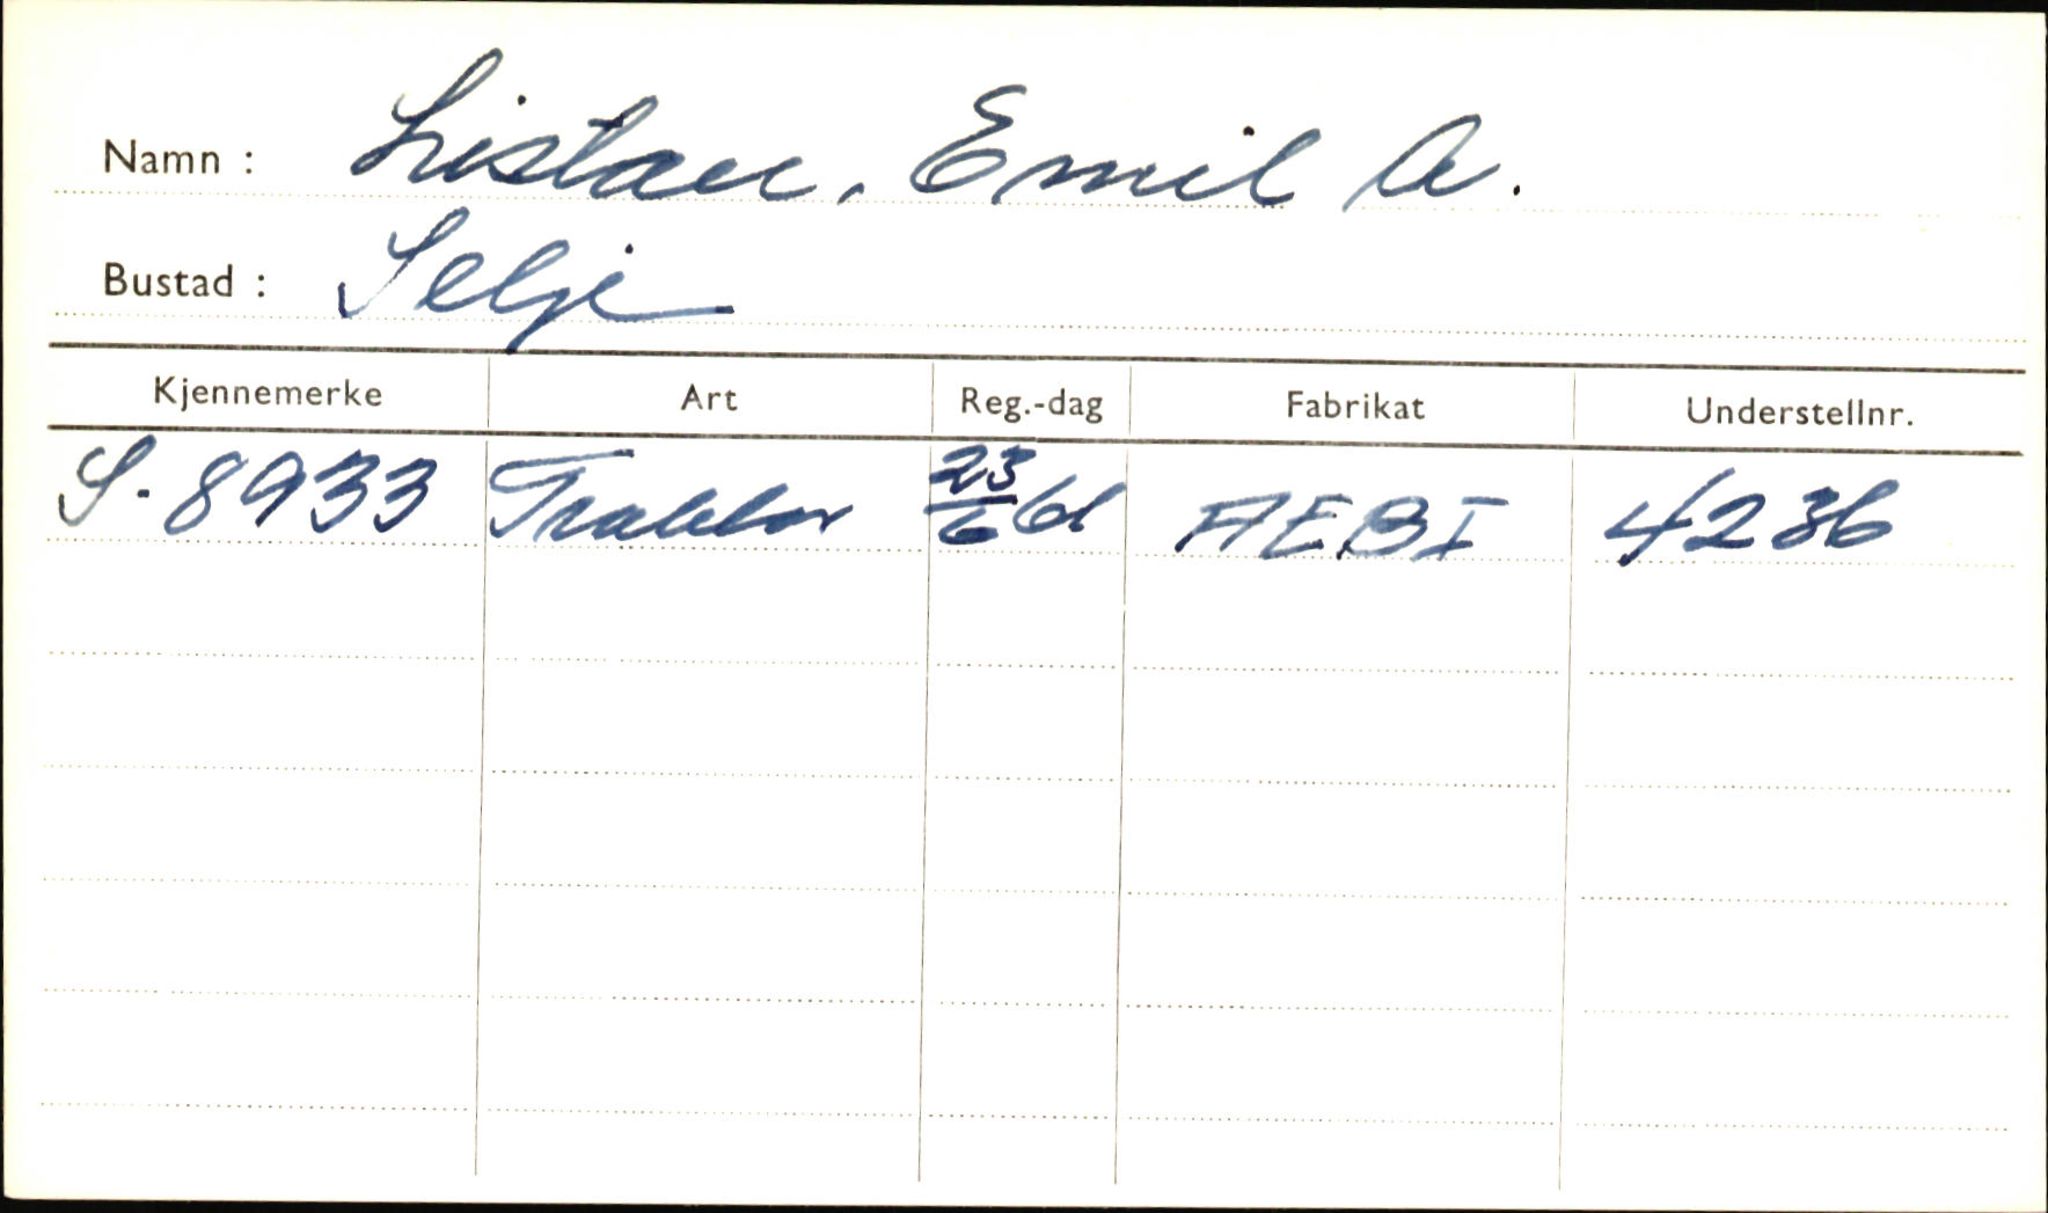 Namn : Listau, Emil A.
Bustad : Selje
Kjennemerke Art Reg.-dag Fabrikat Understellnr.
S-8933 Traktor 23/6 61 AEBI 4236